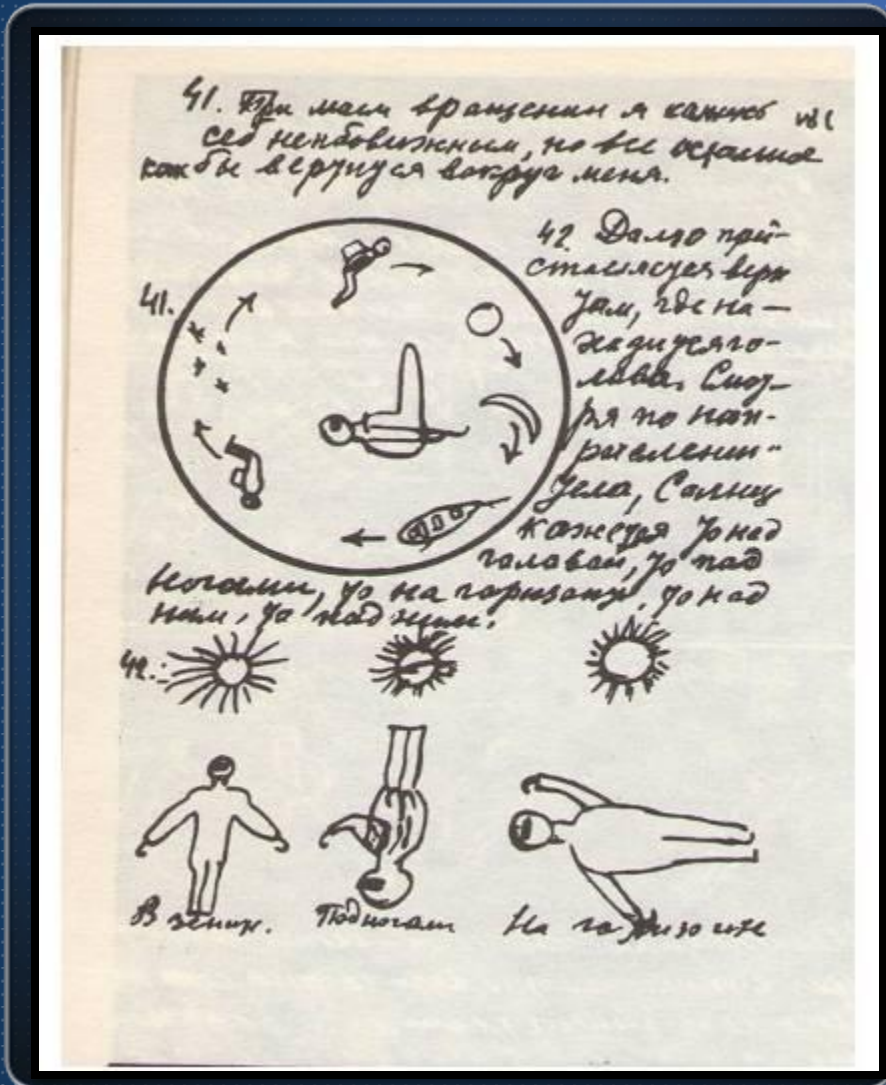 41. При моем вращении я кажусь
себе неподвижным, но все остальное
как бы вертится вокруг меня.
42. Далго пред-
ставляется верх
41.
там, где на-
ходится го-
лова. Смот-
ря по нап-
равлению
тела, Солнце
кажется то над
галавой, то под
ногами, то на горизонте, то над
ним, то под ним.
42.
В зените. Под ногами На горизонте